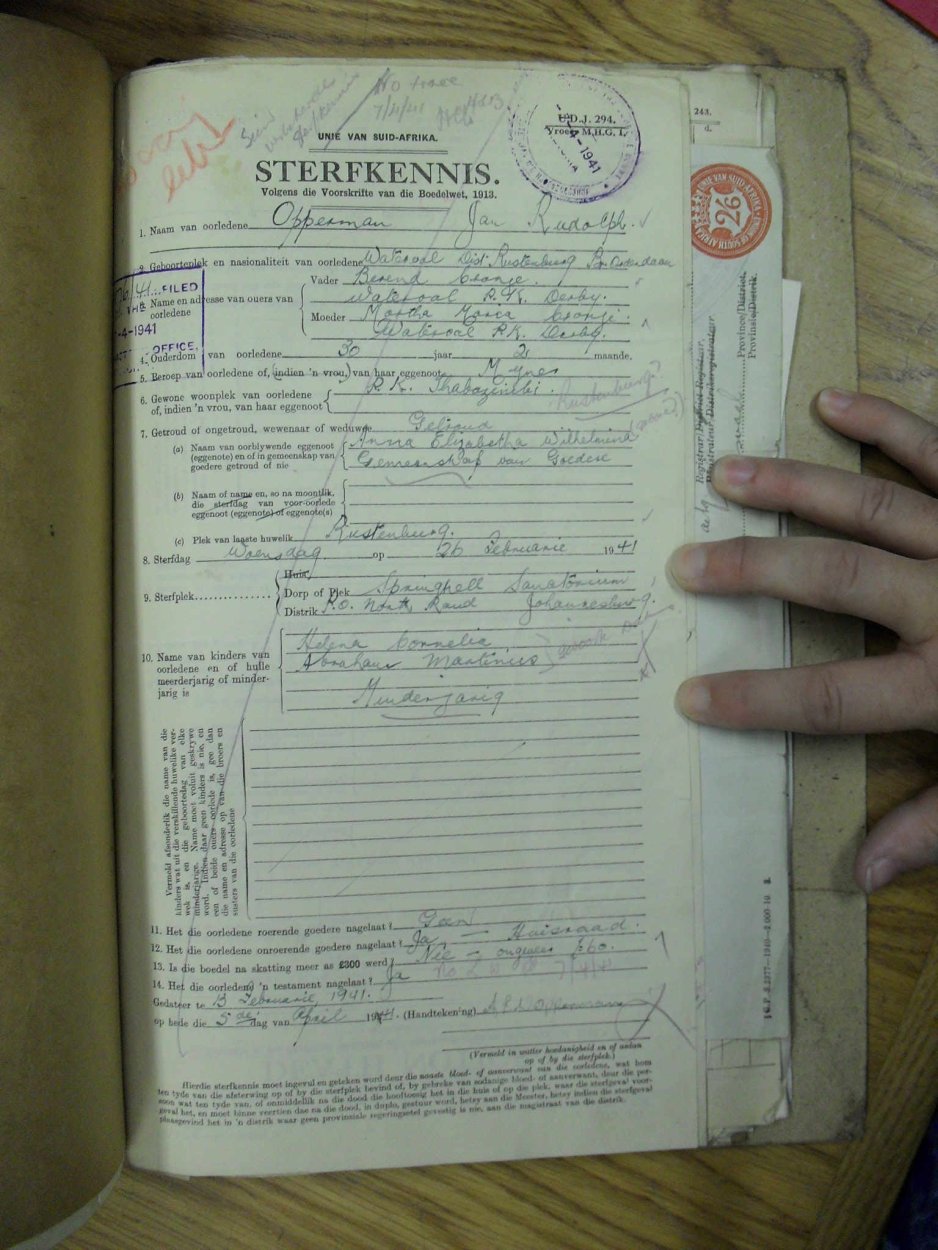 No trace
7/4/41
U.D.J. 294.
Vroeër M.H.G. 1.
-4-1941
UNIE VAN SUID-AFRIKA.
STERFKENNIS.
Volgens die Voorskrifte van die Boedelwet, 1913.
1. Naam van oorledene Opperman Jan Rudolph.
2. Geboorteplek en nasionaliteit van oorledene Waterval Dist. Rustenburg
3. Naam en adresse van ouers van oorledene
Vader Berend Cronje
Waterval P.K. Derby.
Moeder Martha Cronje
Waterval P.K. Derby.
FILED
-4-1941
OFFICE.
4. Ouderdom van oorledene 30 jaar 2 maande.
5. Beroep van oorledene of, (indien 'n vrou,) van haar eggenoot Myner
6. Gewone woonplek van oorledene of, indien 'n vrou, van haar eggenoot P.K. Thabazimbi
Rustenburg?
7. Getroud of ongetroud, wewenaar of weduwe Getroud
(a) Naam van oorblywende eggenoot (eggenote) en of in gemeenskap van goedere getroud of nie
Anna Elizabetha Wilhelmina
Gemeenskap van Goedere
(b) Naam of name en, so na moontlik, die sterfdag van voor-oorlede eggenoot (eggenote) of eggenote(s)
(c) Plek van laaste huwelik Rustenburg.
8. Sterfdag Woensdag op 26 Februarie 1941
9. Sterfplek
Huis
Dorp of Plek Springkell Sanatorium
Distrik P.O. North Rand Johannesburg.
10. Name van kinders van oorledene en of hulle meerderjarig of minderjarig is
Helena Cornelia
Abraham Martinus
Minderjarig
Vermeld afsonderlik die name van die kinders wat uit die verskillende huwelike verwek is, en die geboortedag van elke minderjarige. Name moet voluit geskrywe word. Indien daar geen kinders is nie, en een of beide ouers oorlede is, gee dan die name en adresse op van die broers en susters van die oorledene
11. Het die oorledene roerende goedere nagelaat? Geen
12. Het die oorledene onroerende goedere nagelaat? Ja — Huisraad
13. Is die boedel na skatting meer as £300 werd? Nie — ongeveer £60.
14. Het die oorledene 'n testament nagelaat? Ja
7/4/41
Gedateer te 13 Februarie, 1941.
op hede die 5de dag van April 1941. (Handtekening) A.E.W. Opperman
(Vermeld in watter hoedanigheid en of anten op of by die sterfplek.)
Hierdie sterfkennis moet ingevul en geteken word deur die naaste bloed- of aanverwant van die oorledene, wat hom
ten tyde van die afsterwing op of by die sterfplek bevind of, by gebreke van sodanige bloed- of aanverwant, deur die per-
soon wat ten tyde van, of onmiddellik na die dood die hooftoesig het in die huis of op die plek, waar die sterfgeval voor-
geval het, en moet binne veertien dae na die dood, in duplo, gestuur word, hetsy aan die Meester, hetsy indien die sterfgeval
plaasgevind het in 'n distrik waar geen provinsiale regeringsetel gevestig is nie, aan die magistraat van die distrik.
243.
UNIE VAN SUID-AFRIKA · UNION OF SOUTH AFRICA
2/6
Registrar/District Registrar.
Registrateur/Distriksregistrateur.
Province/District.
Provinsie/Distrik.